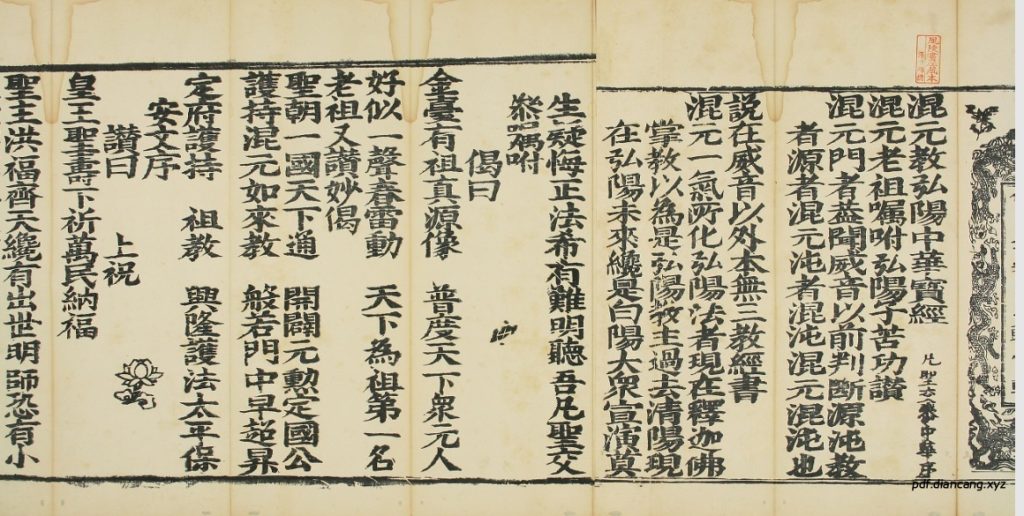 混元教弘陽中華寶經
凡聖交叅中華序
混元老祖囑咐弘陽子苦功讃
混元門者葢聞威音以前判斷源沌教
者源者混元沌者混沌混元混沌也
說在威音以外本無三教經書
混元一氣所化弘陽法者現在釋迦佛
掌教以為是弘陽教主過去清陽現
在弘陽未來纔是白陽大衆宣演莫
生疑悔正法希有難明聽吾凡聖交
叅囑咐
偈曰
金臺有祖真源像 普度天下衆元人
好似一聲春雷動 天下為祖第一名
老祖又讃妙偈
聖朝一國天下通 開闢元勲定國公
護持混元如來教 般若門中早超昇
定府護持 祖教 興隆護法太平保
安文序
讃曰 上祝
皇王聖壽下祈萬民納福
聖主洪福齊天纔有出世明師恐有小
pdf.diancang.xyz